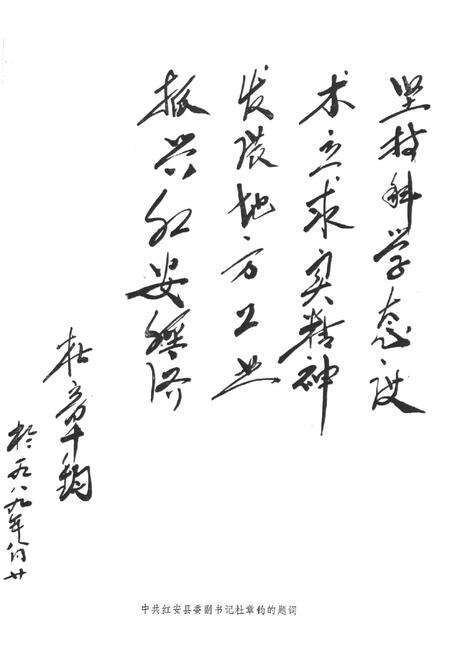 坚持科学态度
术立求实精神
发展地方工业
振兴红安经济
杜章钧
于一九八九年八月廿
中共红安县委副书记杜章钧的题词